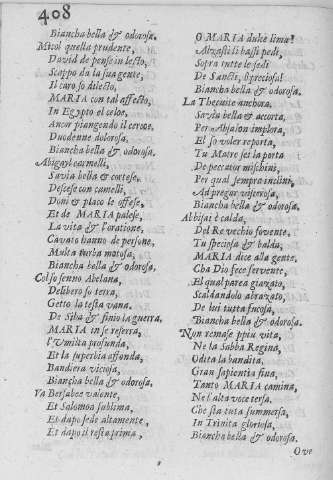 408
Bianca bella & odorosa.
Micol quella prudente,
David de pense in lecto,
Scappo da la sua gente,
Il caro so dilecto,
MARIA con tal affecto,
In Egypto el celor,
Ancor piangendo il cerece,
Duodenne dolorosa,
Biancha bella & odorosa.
Abigayl carmelli,
Savia bella & cortese,
Descese con camelli,
Doni & place le offese,
Et de MARIA palese,
La vita & l'oratione,
Cavato hanno de persone,
Multa turba motosa,
Biancha bella & odorosa.
Col so senno Abelana,
Delibero so terra,
Getto la testa vana,
De Siba & finio la guerra,
MARIA in se reserra,
l'Umilta profunda,
Et la superbia affonda,
Bandiera viciosa,
Biancha bella & odorosa.
Va Bersabee valente,
Et Salomon sublima,
Et dapo sede altamente,
Et dapo il resta prima,
O MARIA dulce lima!
Alzasti li bassi pedi,
Sopra tutte le sedi
De Sancti, & preciosa!
Biancha bella & odorosa.
La Thecuite anchora,
Savia bella & accorta,
Per Absalon implora,
El so voler reporta,
Tu Matre sei la porta
De peccator mischini,
Per qual sempre inclini,
Ad pregar viscerosa,
Biancha bella & odorosa.
Abbisai è calda,
Del Re vechio fovente,
Tu speciosa & balda,
MARIA dice alla gente,
Cha Dio fece servente,
El qual parea giazato,
Scaldandolo abrazato,
De lui tutta fucosa,
Biancha bella & odorosa.
Non remase ppiu vita,
Ne la Sabba Regina,
Odita la bandita,
Gran sapientia fina,
Tanto MARIA camina,
Ne l'alta voce tersa.
Che sta tuta summersa,
In Trinita gloriosa,
Biancha bella & odorosa.
Ove